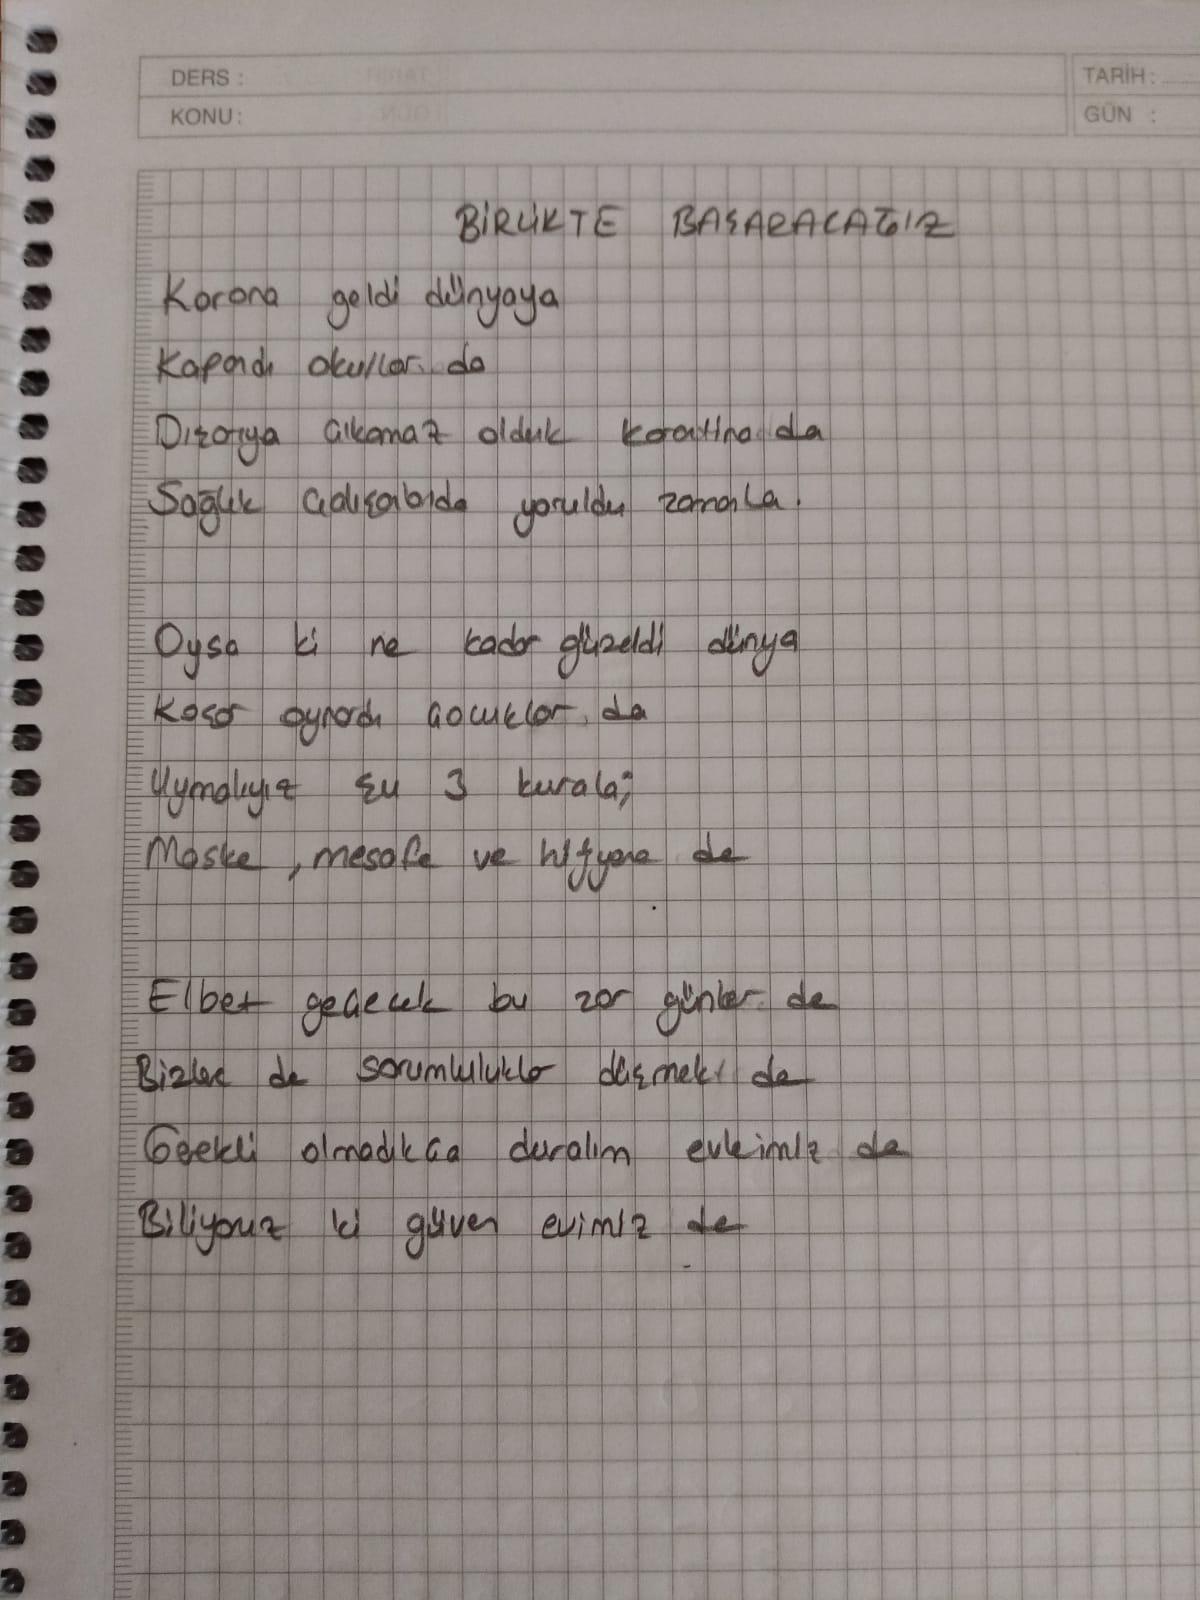 DERS :
KONU :
TARİH :
GÜN :
BİRLİKTE BAŞARACAĞIZ
Korona geldi dünyaya
Kapandı okullar da
Dışarıya çıkamaz olduk karatina da
Sağlık çalışanıda yoruldu zamanla.
Oysa ki ne kadar güzeldi dünya
Koşar oynardı çocuklar da
Uymalıyız şu 3 kurala;
Maske, mesafe ve hijyene de
Elbet geçecek bu zor günler de
Bizlere de sorumluluklar düşmekte de
Gerekli olmadıkça duralım evlerimiz de
Biliyoruz ki güven evimiz de